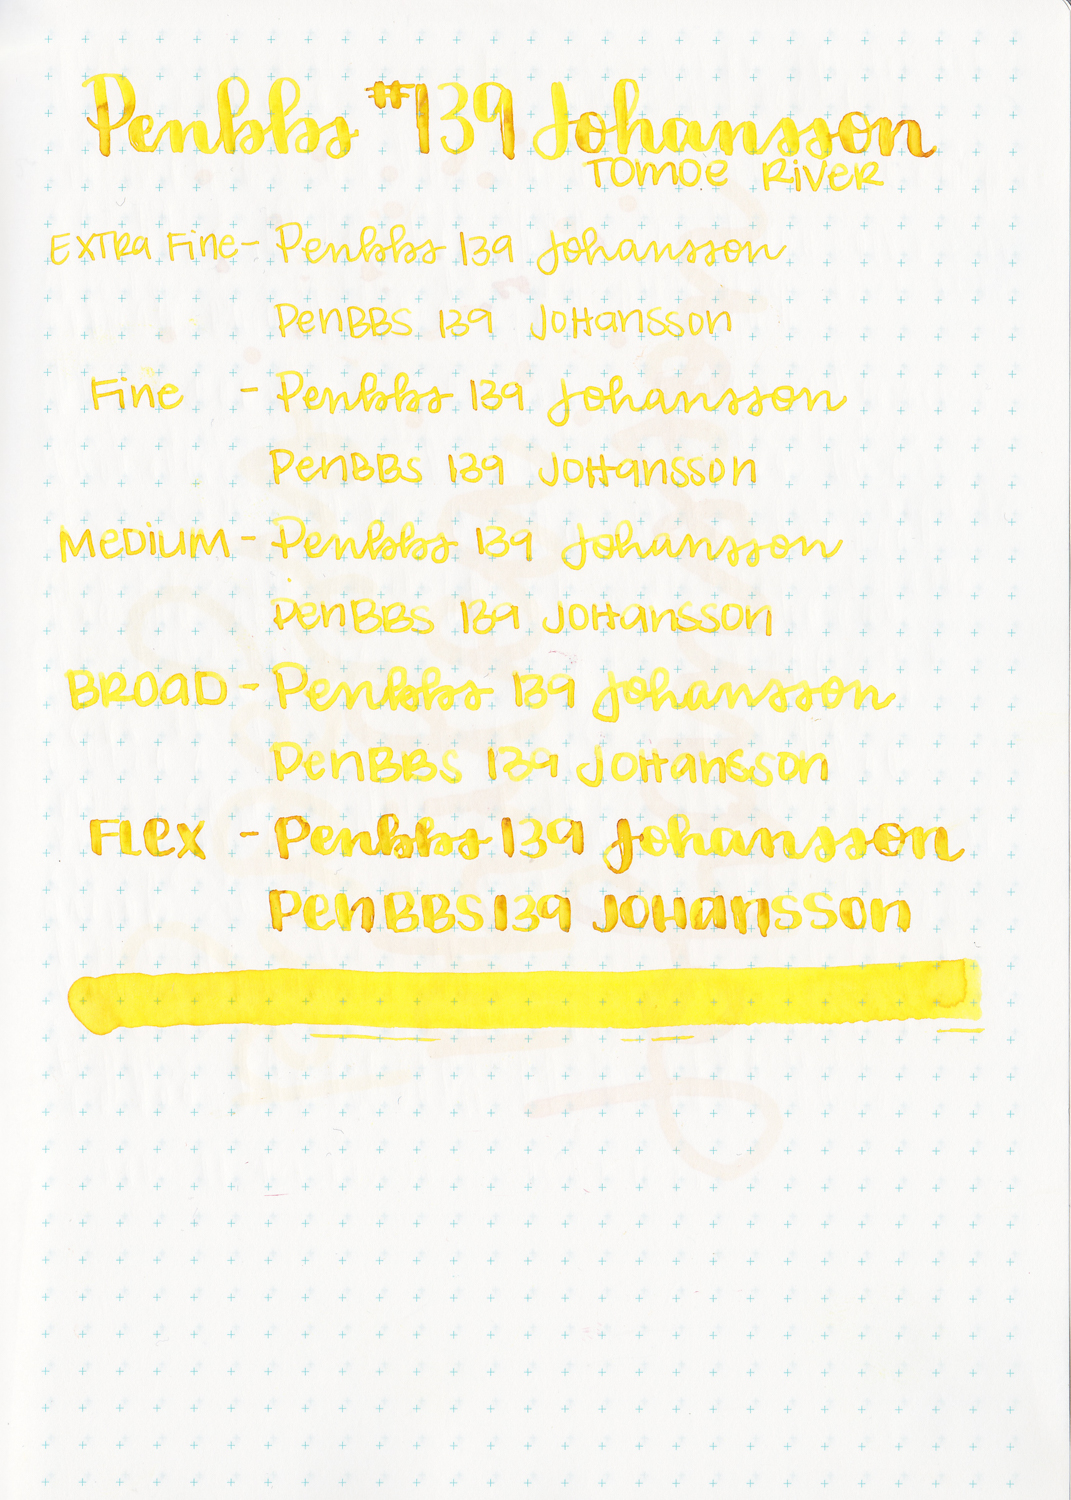 Penbbs #139 Johansson
Tomoe River
Extra Fine - Penbbs 139 Johansson
PenBBS 139 Johansson
Fine - Penbbs 139 Johansson
PenBBS 139 Johansson
Medium - Penbbs 139 Johansson
PenBBS 139 Johansson
Broad - Penbbs 139 Johansson
PenBBS 139 Johansson
Flex - Penbbs 139 Johansson
PenBBS 139 Johansson